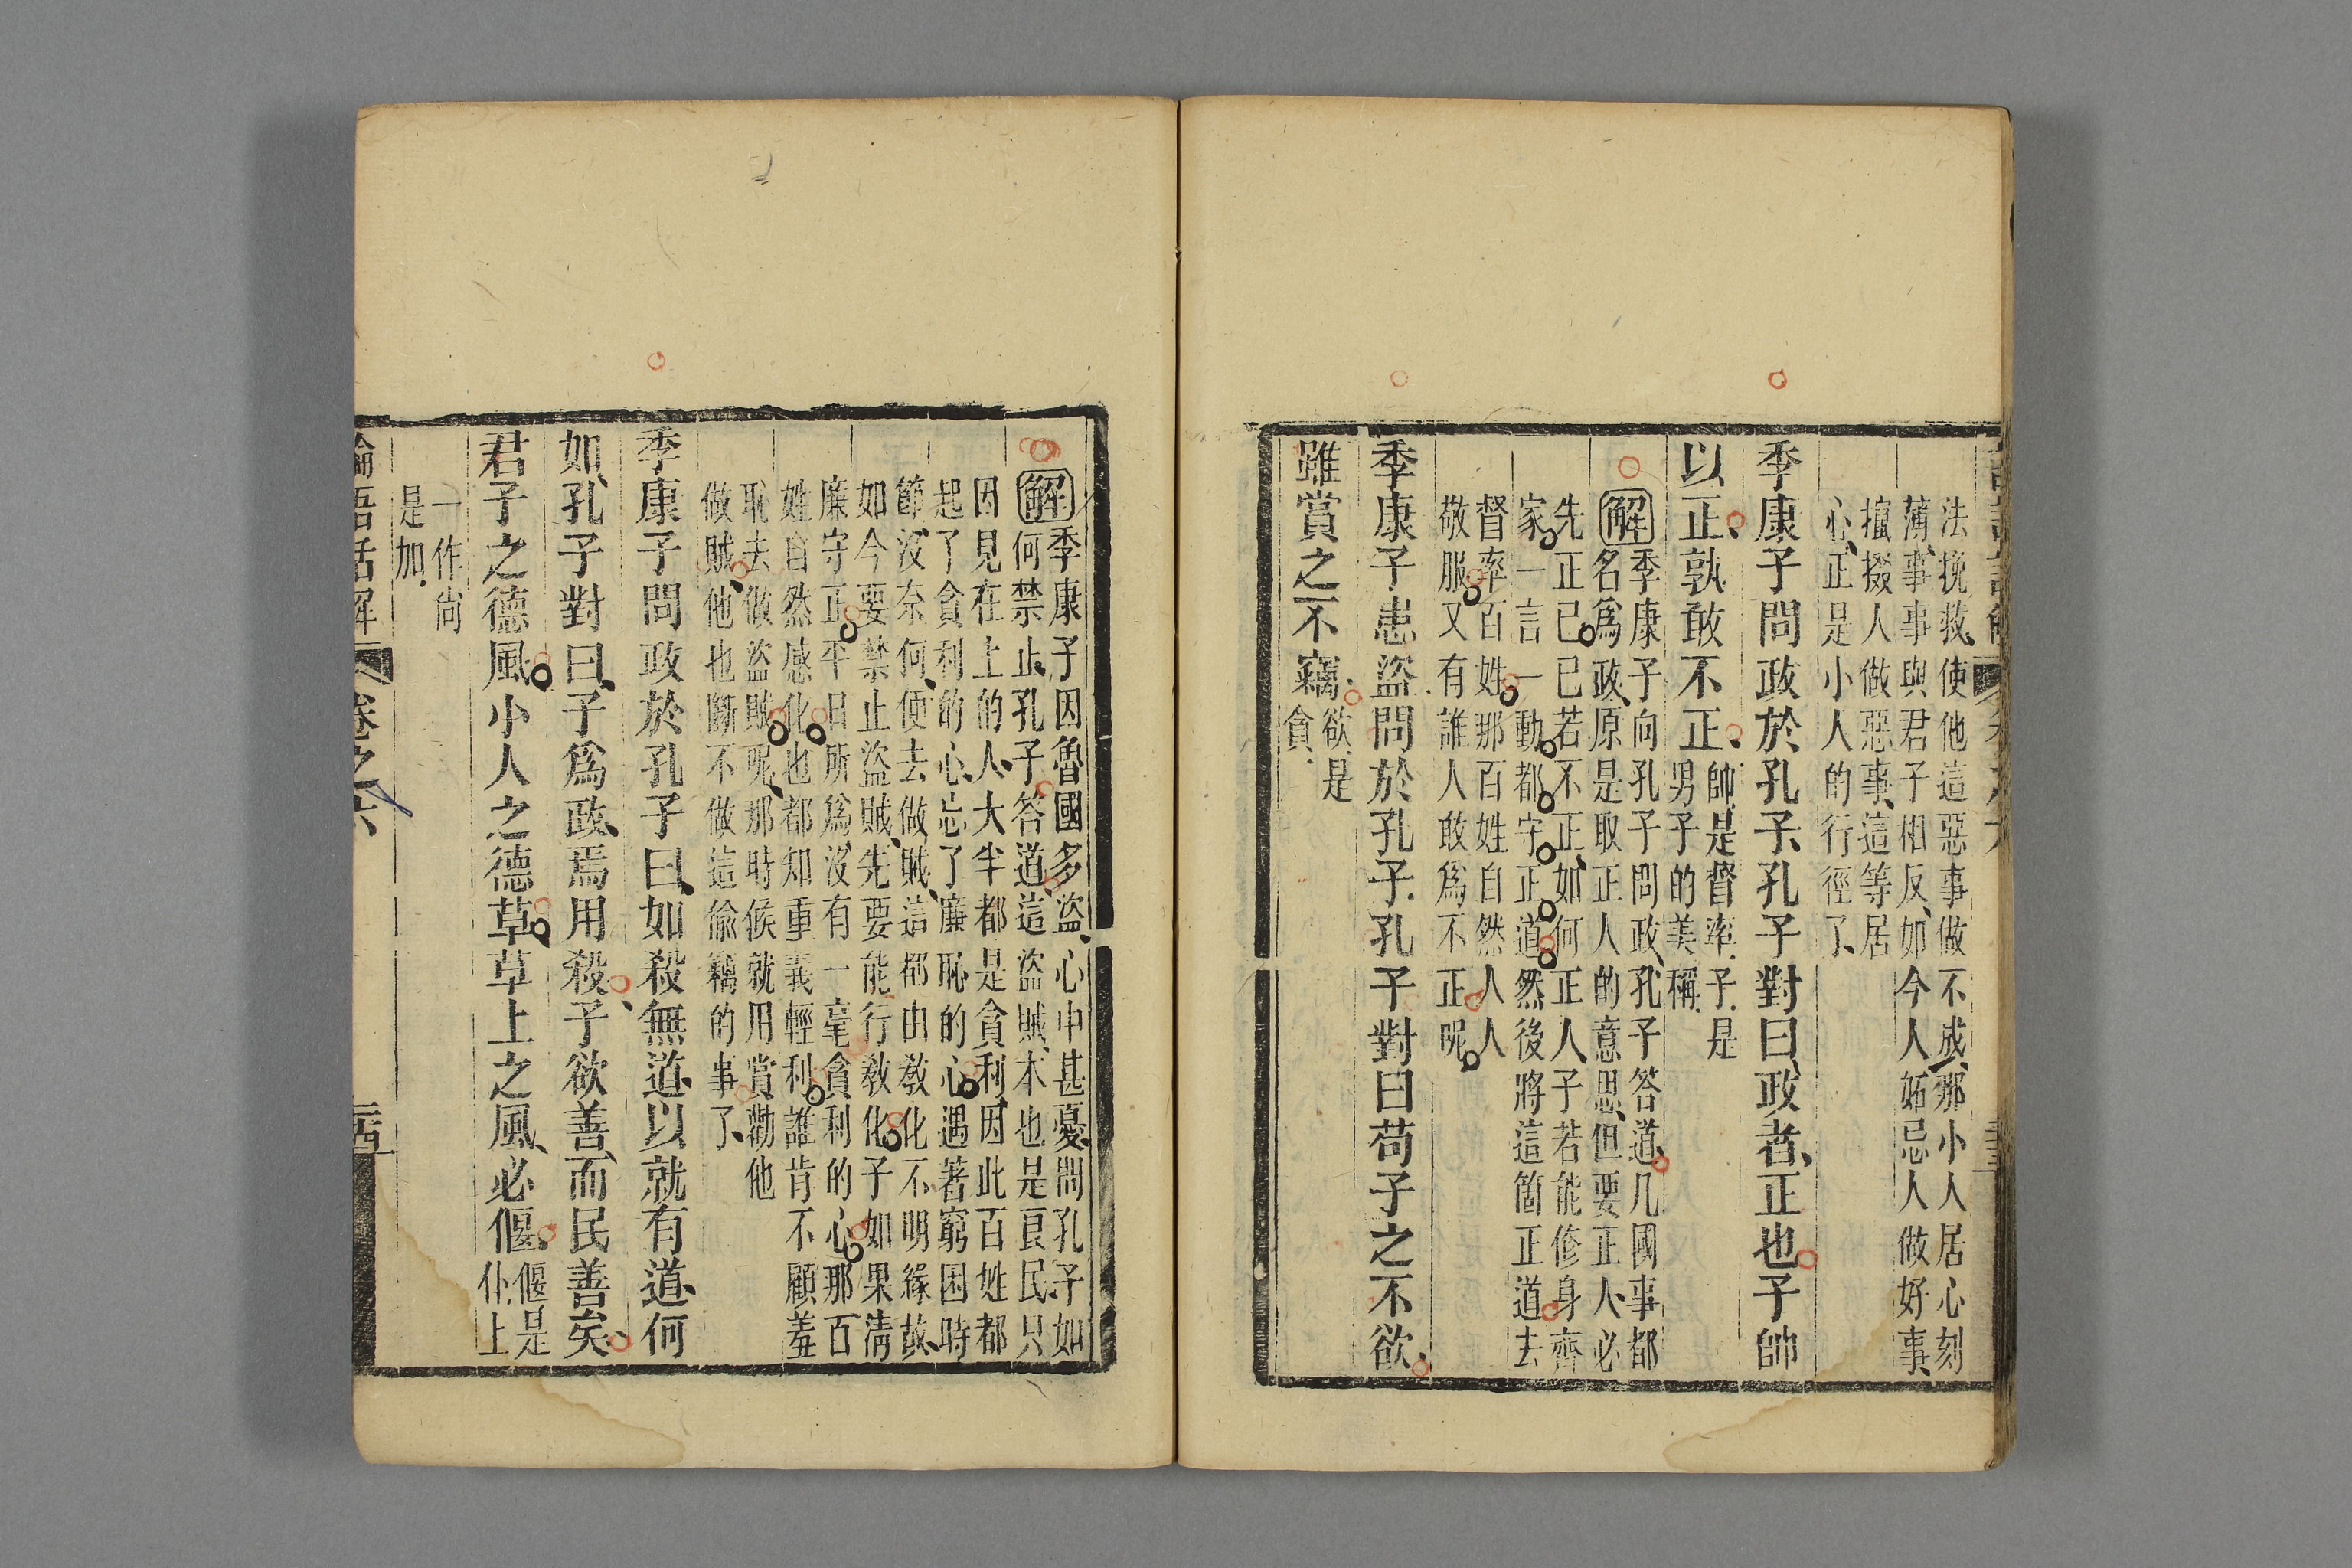 法挽救、使他這惡事做不成、那小人居心刻
薄、事事與君子相反、如今人妬忌人做好事、
攛掇人做惡事、這等居
心、正是小人的行徑了、
季康子問政於孔子、孔子對曰、政者、正也、子帥
以正、孰敢不正、帥、是督率、子、是
男子的美稱、
解 季康子向孔子問政、孔子答道、凡國事都
名爲政、原是取正人的意思、但要正人、必
先正已、已若不正、如何正人、子若能修身齊
家、一言一動、都守正道、然後將這箇正道去
督率百姓、那百姓自然人人
敬服、又有誰人敢爲不正呢、
季康子患盜、問於孔子、孔子對曰、苟子之不欲、
雖賞之不竊、欲、是
貪、
解 季康子因魯國多盜、心中甚憂、問孔子如
何禁止、孔子答道、這盜賊、本也是良民、只
因見在上的人、大半都是貪利、因此百姓都
起了貪利的心、忘了廉恥的心、遇著窮困時
節、沒奈何、便去做賊、這都由敎化不明緣故、
如今要禁止盜賊、先要能行敎化、子如果清
廉守正、平日所爲、沒有一毫貪利的心、那百
姓自然感化、也都知重義輕利、誰肯不顧羞
恥、去做盜賊呢、那時候就用賞勸他
做賊、他也斷不做這偷竊的事了、
季康子問政於孔子曰、如殺無道、以就有道、何
如、孔子對曰、子爲政、焉用殺、子欲善、而民善矣、
君子之德風、小人之德草、草上之風、必偃、偃是
仆、上
一作尚
是加、
論語話解 卷之六 二十四